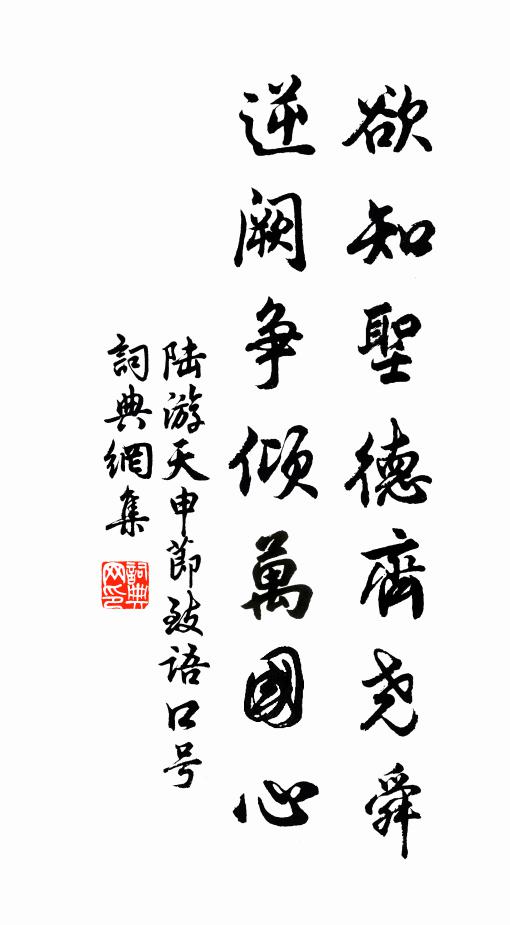 欲知聖德齊尧舜
逆阙争倾萬國心
陆游天申節致语口号
詞典網集
詞典网印